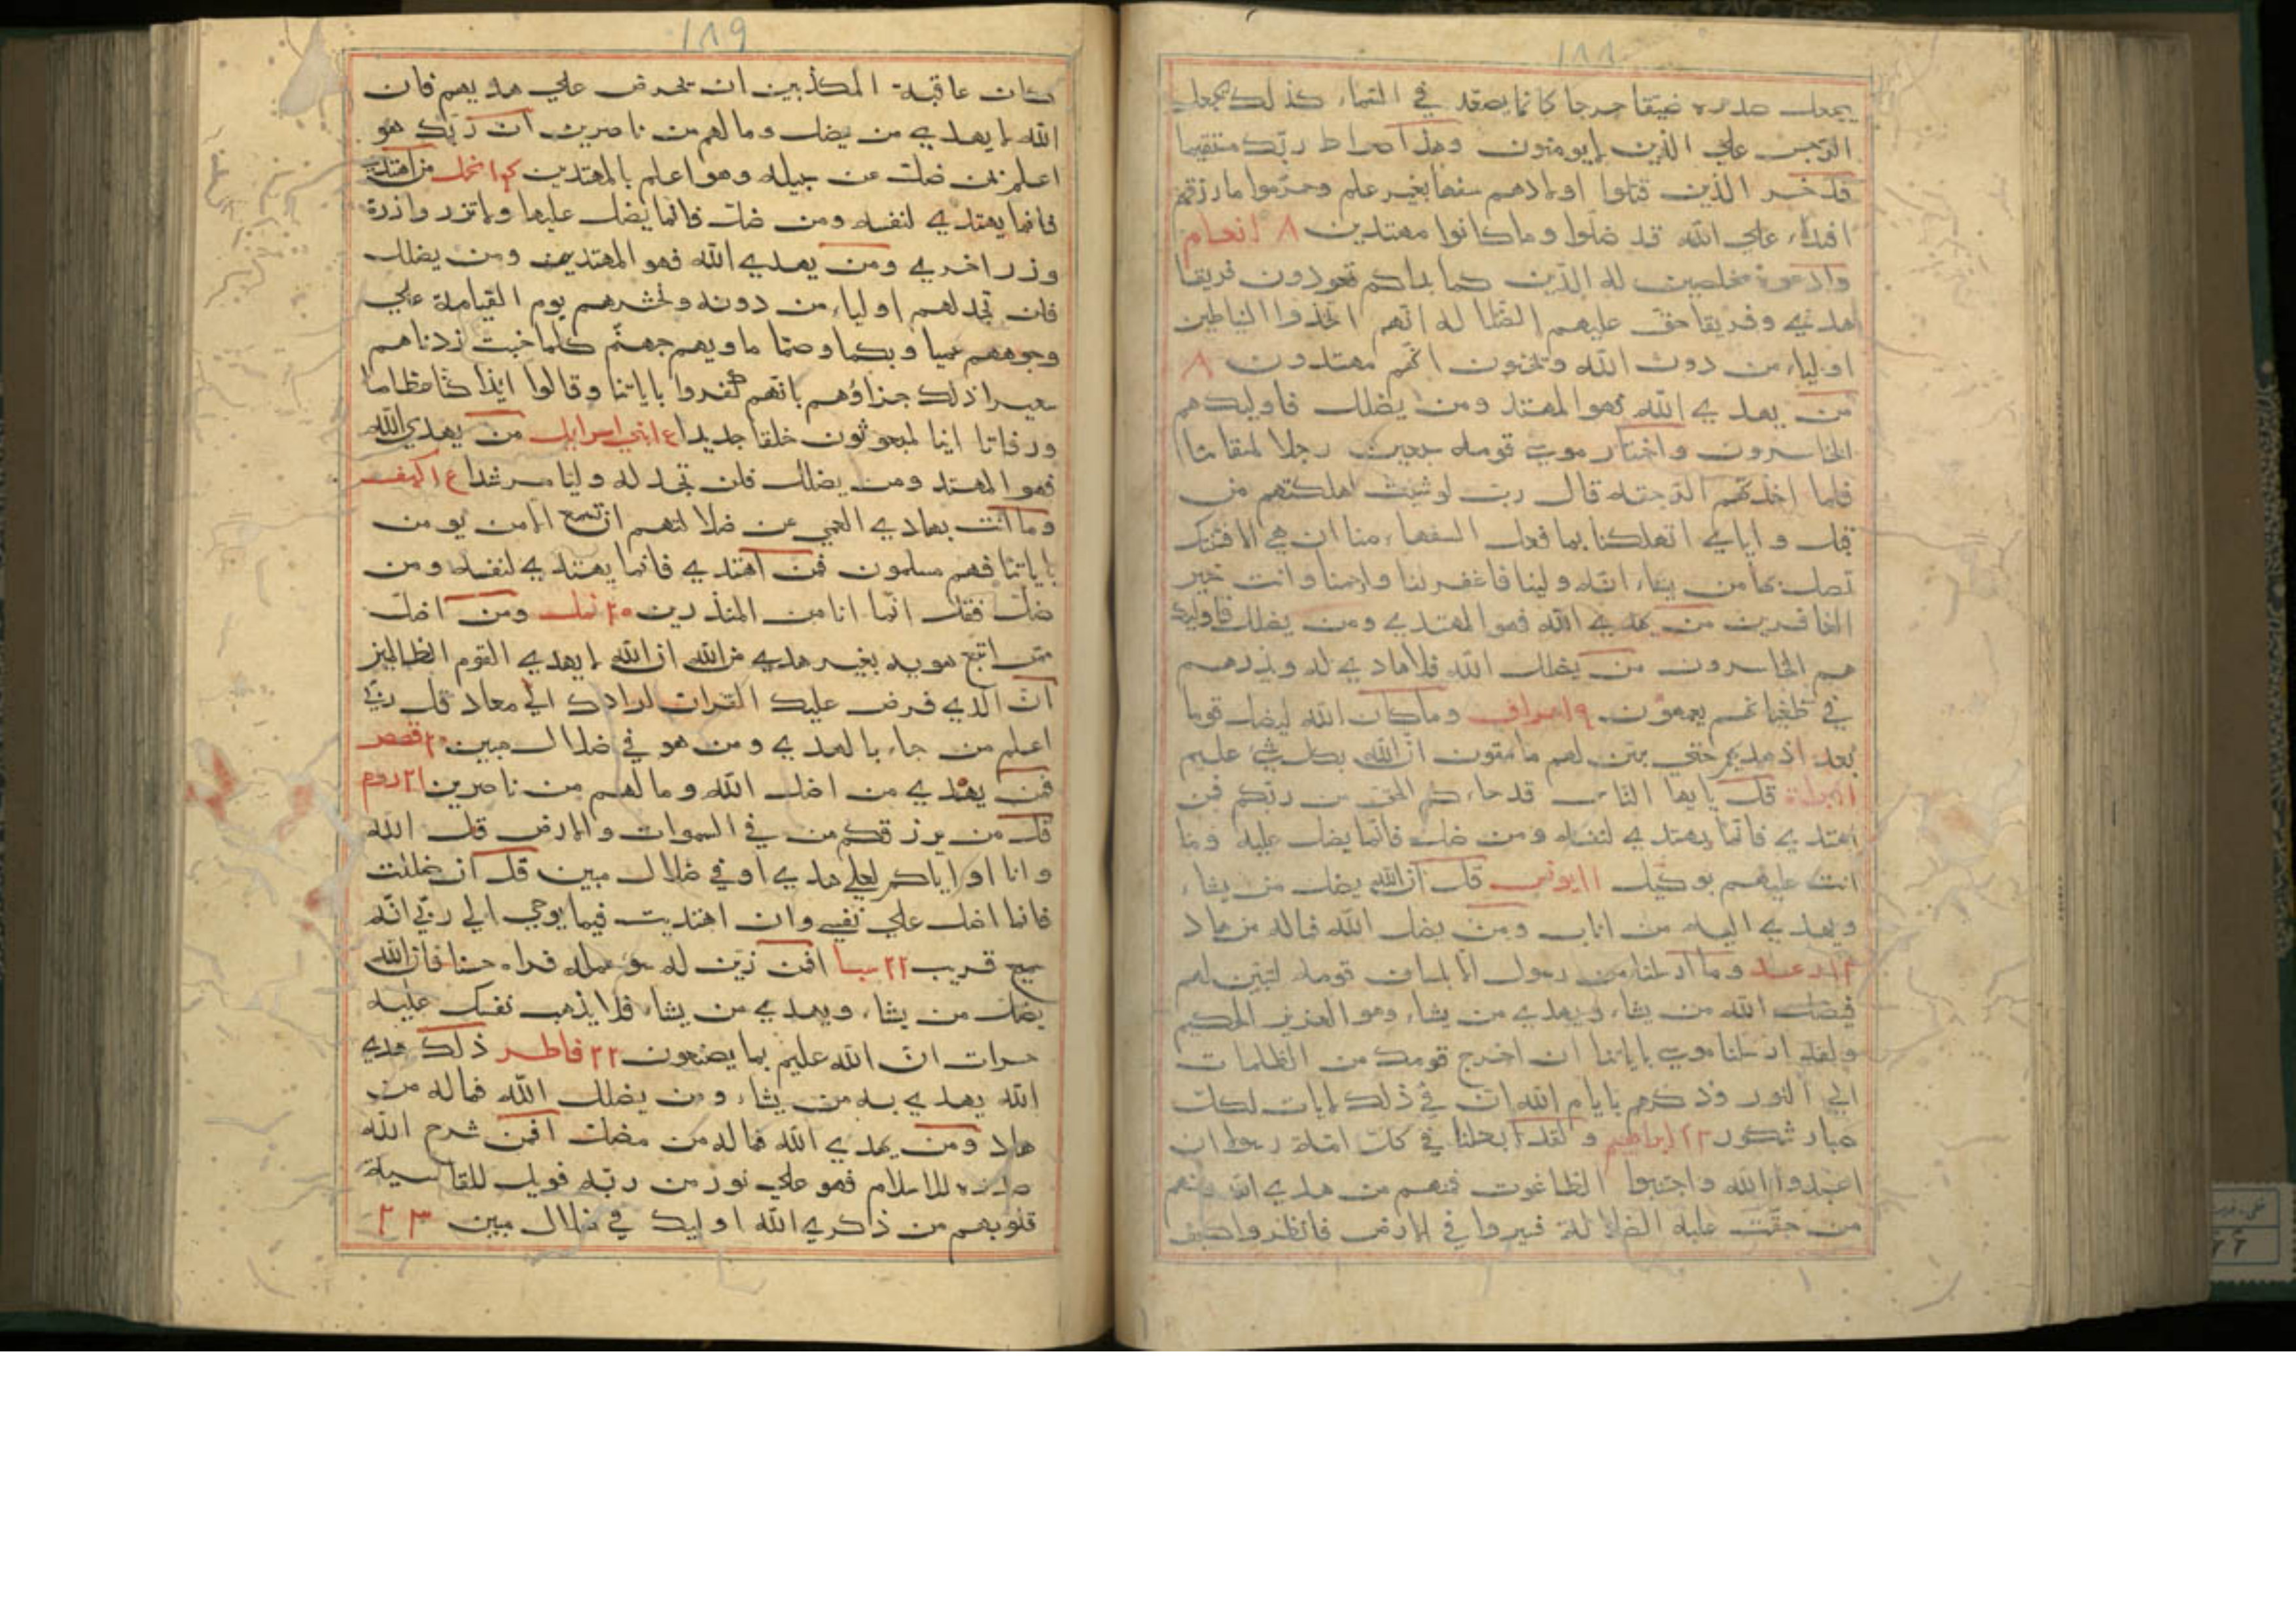 ١٨٨
يجعل صدره ضيقا حرجا كانما يصعد في السماء كذلك يجعل
الرجس علي الذين لايومنون وهذا صراط ربك مستقيما
قد خسر الذين قتلوا اولادهم سفها بغير علم وحرموا مارزقهم
افتراء علي الله قد ضلوا وماكانوا مهتدين ٨ انعام
وادعوه مخلصين له الدين كما بداكم تعودون فريقا
هدي وفريقا حق عليهم الضلاله انهم اتخذوا الشياطين
اولياء من دون الله ويحسبون انهم مهتدون ٨
من يهدي الله فهو المهتد ومن يضلل فاوليك هم
الخاسرون واختار موسي قومه سبعين رجلا لميقاتنا
فلما اخذتهم الرجفه قال رب لو شئت اهلكتهم من
قبل واياي اتهلكنا بما فعل السفهاء منا ان هي الا فتنتك
تضل بها من يشاء انت ولينا فاغفرلنا وارحمنا وانت خير
الغافرين من يهدي الله فهو المهتدي ومن يضلل فاوليك
هم الخاسرون من يضلل الله فلاهادي له ويذرهم
في طغيانهم يعمهون ٩ اعراف وماكان الله ليضل قوما
بعد اذ هديهم حتي يبين لهم مايتقون ان الله بكل شئ عليم
براءة قل يايها الناس قد جاءكم الحق من ربكم فمن
اهتدي فانما يهتدي لنفسه ومن ضل فانما يضل عليه وما
انت عليهم بوكيل ١١ يونس قل ان الله يضل من يشاء
ويهدي اليه من اناب ومن يضل الله فماله من هاد
رعد وما ارسلنا من رسول الا بلسان قومه ليبين لهم
فيضل الله من يشاء ويهدي من يشاء وهو العزيز الحكيم
ولقد ارسلنا موسي باياتنا ان اخرج قومك من الظلمات
الي النور وذكرهم بايام الله ان في ذلك لايات لكل
صبار شكور ١٣ ابراهيم ولقد ابعثنا في كل امة رسولا ان
اعبدوا الله واجتنبوا الطاغوت فمنهم من هدي الله ومنهم
من حقت عليه الضلالة فسيروا في الارض فانظروا كيف
١٨٩
كان عاقبة المكذبين ان تحرص علي هديهم فان
الله لايهدي من يضل ومالهم من ناصرين ان ربك هو
اعلم بمن ضل عن سبيله وهو اعلم بالمهتدين نحل من اهتدي
فانما يهتدي لنفسه ومن ضل فانما يضل عليها ولاتزر وازرة
وزر اخري ومن يهدي الله فهو المهتدي ومن يضلل
فلن تجد لهم اولياء من دونه ونحشرهم يوم القيامة علي
وجوههم عميا وبكما وصما ماويهم جهنم كلما خبت زدناهم
سعيرا ذلك جزاؤهم بانهم كفروا باياتنا وقالوا ايذا كنا عظاما
ورفاتا اينا لمبعوثون خلقا جديدا بني اسرايل من يهدي الله
فهو المهتد ومن يضلل فلن تجد له وليا مرشدا كهف
وماانت بهادي العمي عن ضلالتهم ان تسمع الا من يومن
باياتنا فهم مسلمون فمن اهتدي فانما يهتدي لنفسه ومن
ضل فقل انما انا من المنذرين ٢٠ نمل ومن اضل
ممن اتبع هويه بغير هدي من الله ان الله لايهدي القوم الظالمين
ان الذي فرض عليك القران لرادك الي معاد قل ربي
اعلم من جاء بالهدي ومن هو في ضلال مبين ٢٠ قصص
فمن يهدي من اضل الله ومالهم من ناصرين ٢١ روم
قل من يرزقكم من في السموات والارض قل الله
وانا او اياكم لعلي هدي او في ضلال مبين قل ان ضللت
فانما اضل علي نفسي وان اهتديت فبما يوحي الي ربي انه
سميع قريب ٢٢ سبا افمن زين له سو عمله فراه حسنا فان الله
يضل من يشاء ويهدي من يشاء فلا يذهب نفسك عليه
حسرات ان الله عليم بما يصنعون ٢٢ فاطر ذلك هدي
الله يهدي به من يشاء ومن يضلل الله فماله من
هاد ومن يهدي الله فماله من مضل افمن شرح الله
صدره للاسلام فهو علي نور من ربه فويل للقاسية
قلوبهم من ذكر ي الله اوليك في ضلال مبين ٢٣